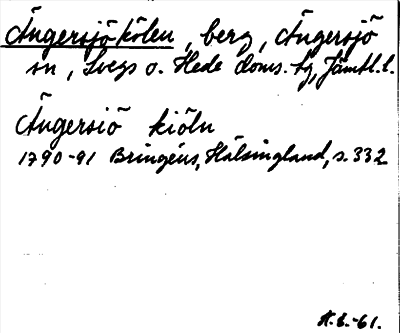 Ängersjökölen, berg, Ängersjö
sn, Svegs o. Hede doms. tg, Jämtl. l.
Ängersiö kiöln
1790-91 Bringéus, Hälsingland, s. 332
H.L.-61.